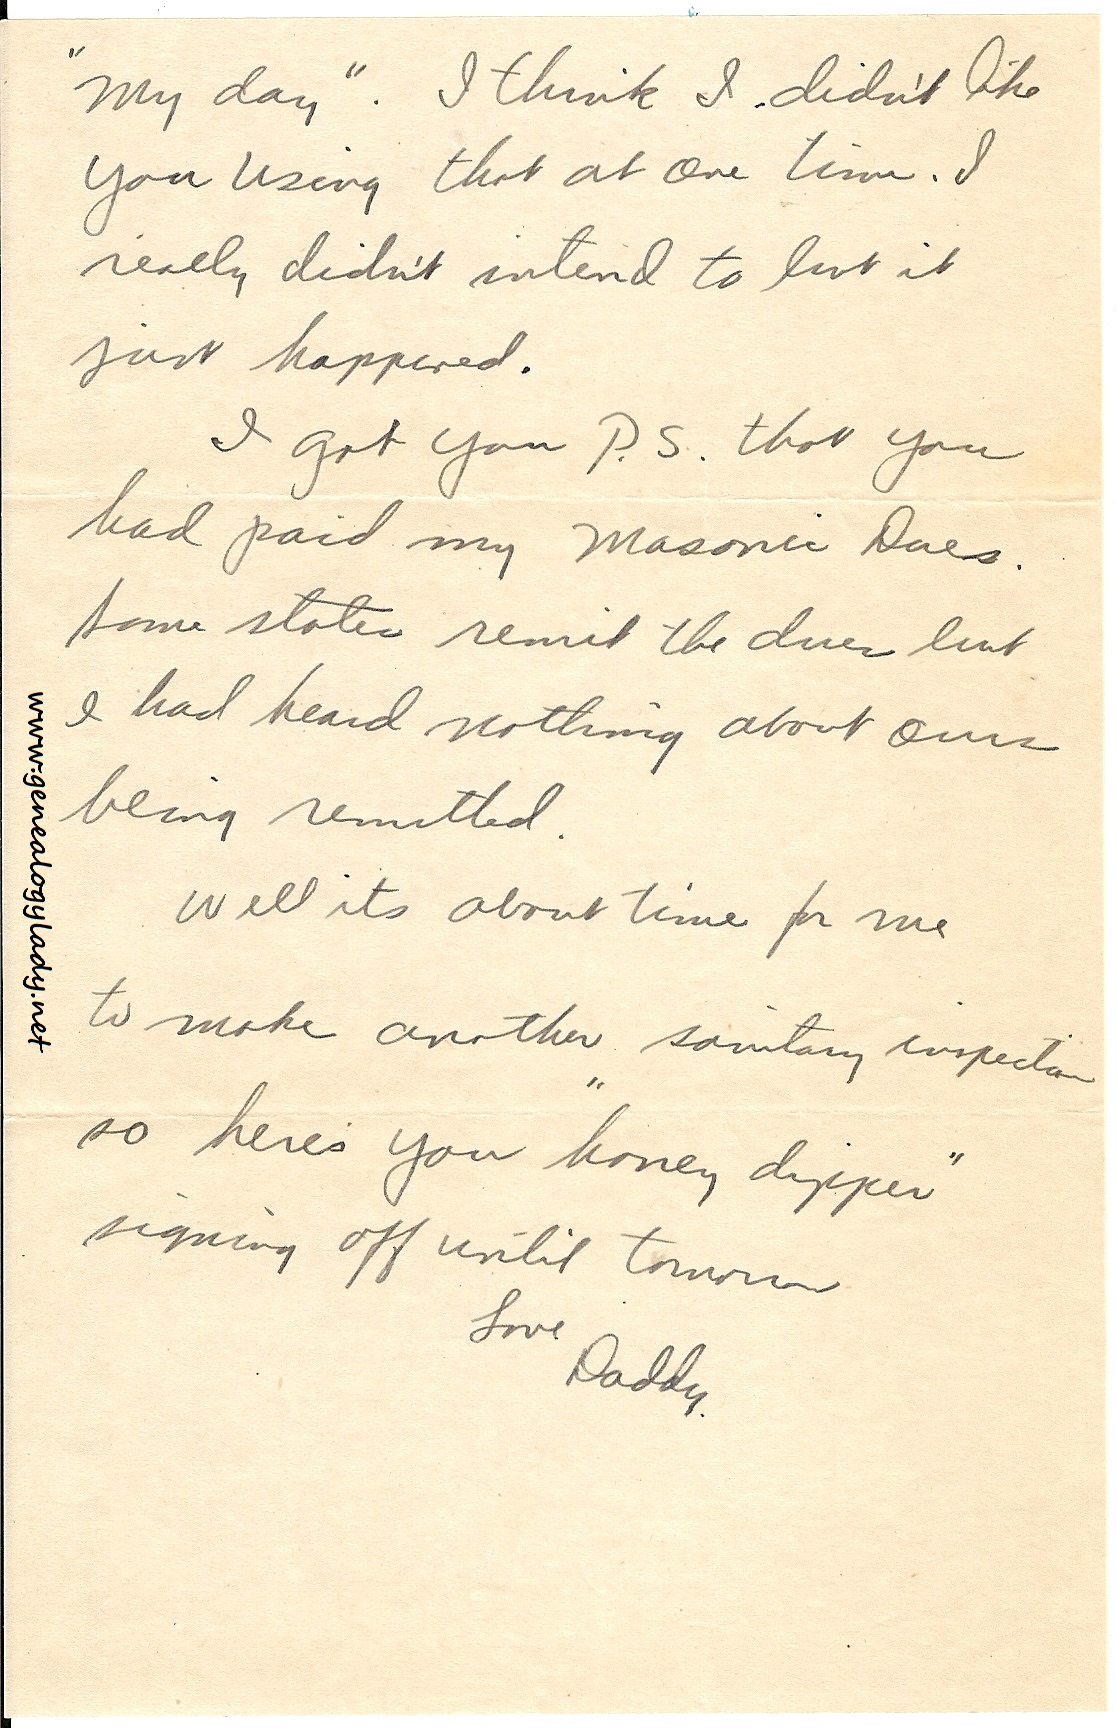 "My day". I think I didn't like
you using that at one time. I
really didn't intend to but it
just happened.
I got you P.S. that you
had paid my Masonic Dues.
Some states remit the dues but
I had heard nothing about ours
being remitted.
Well its about time for me
to make another sanitary inspection
so here's you "honey dipper"
signing off until tomorrow
Love
Daddy.
www.genealogylady.net